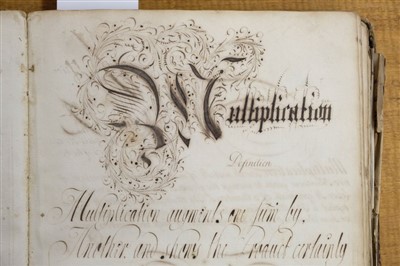 Multiplication
Definition
Multiplication augments one sum by,
Another and shows the Product certainly